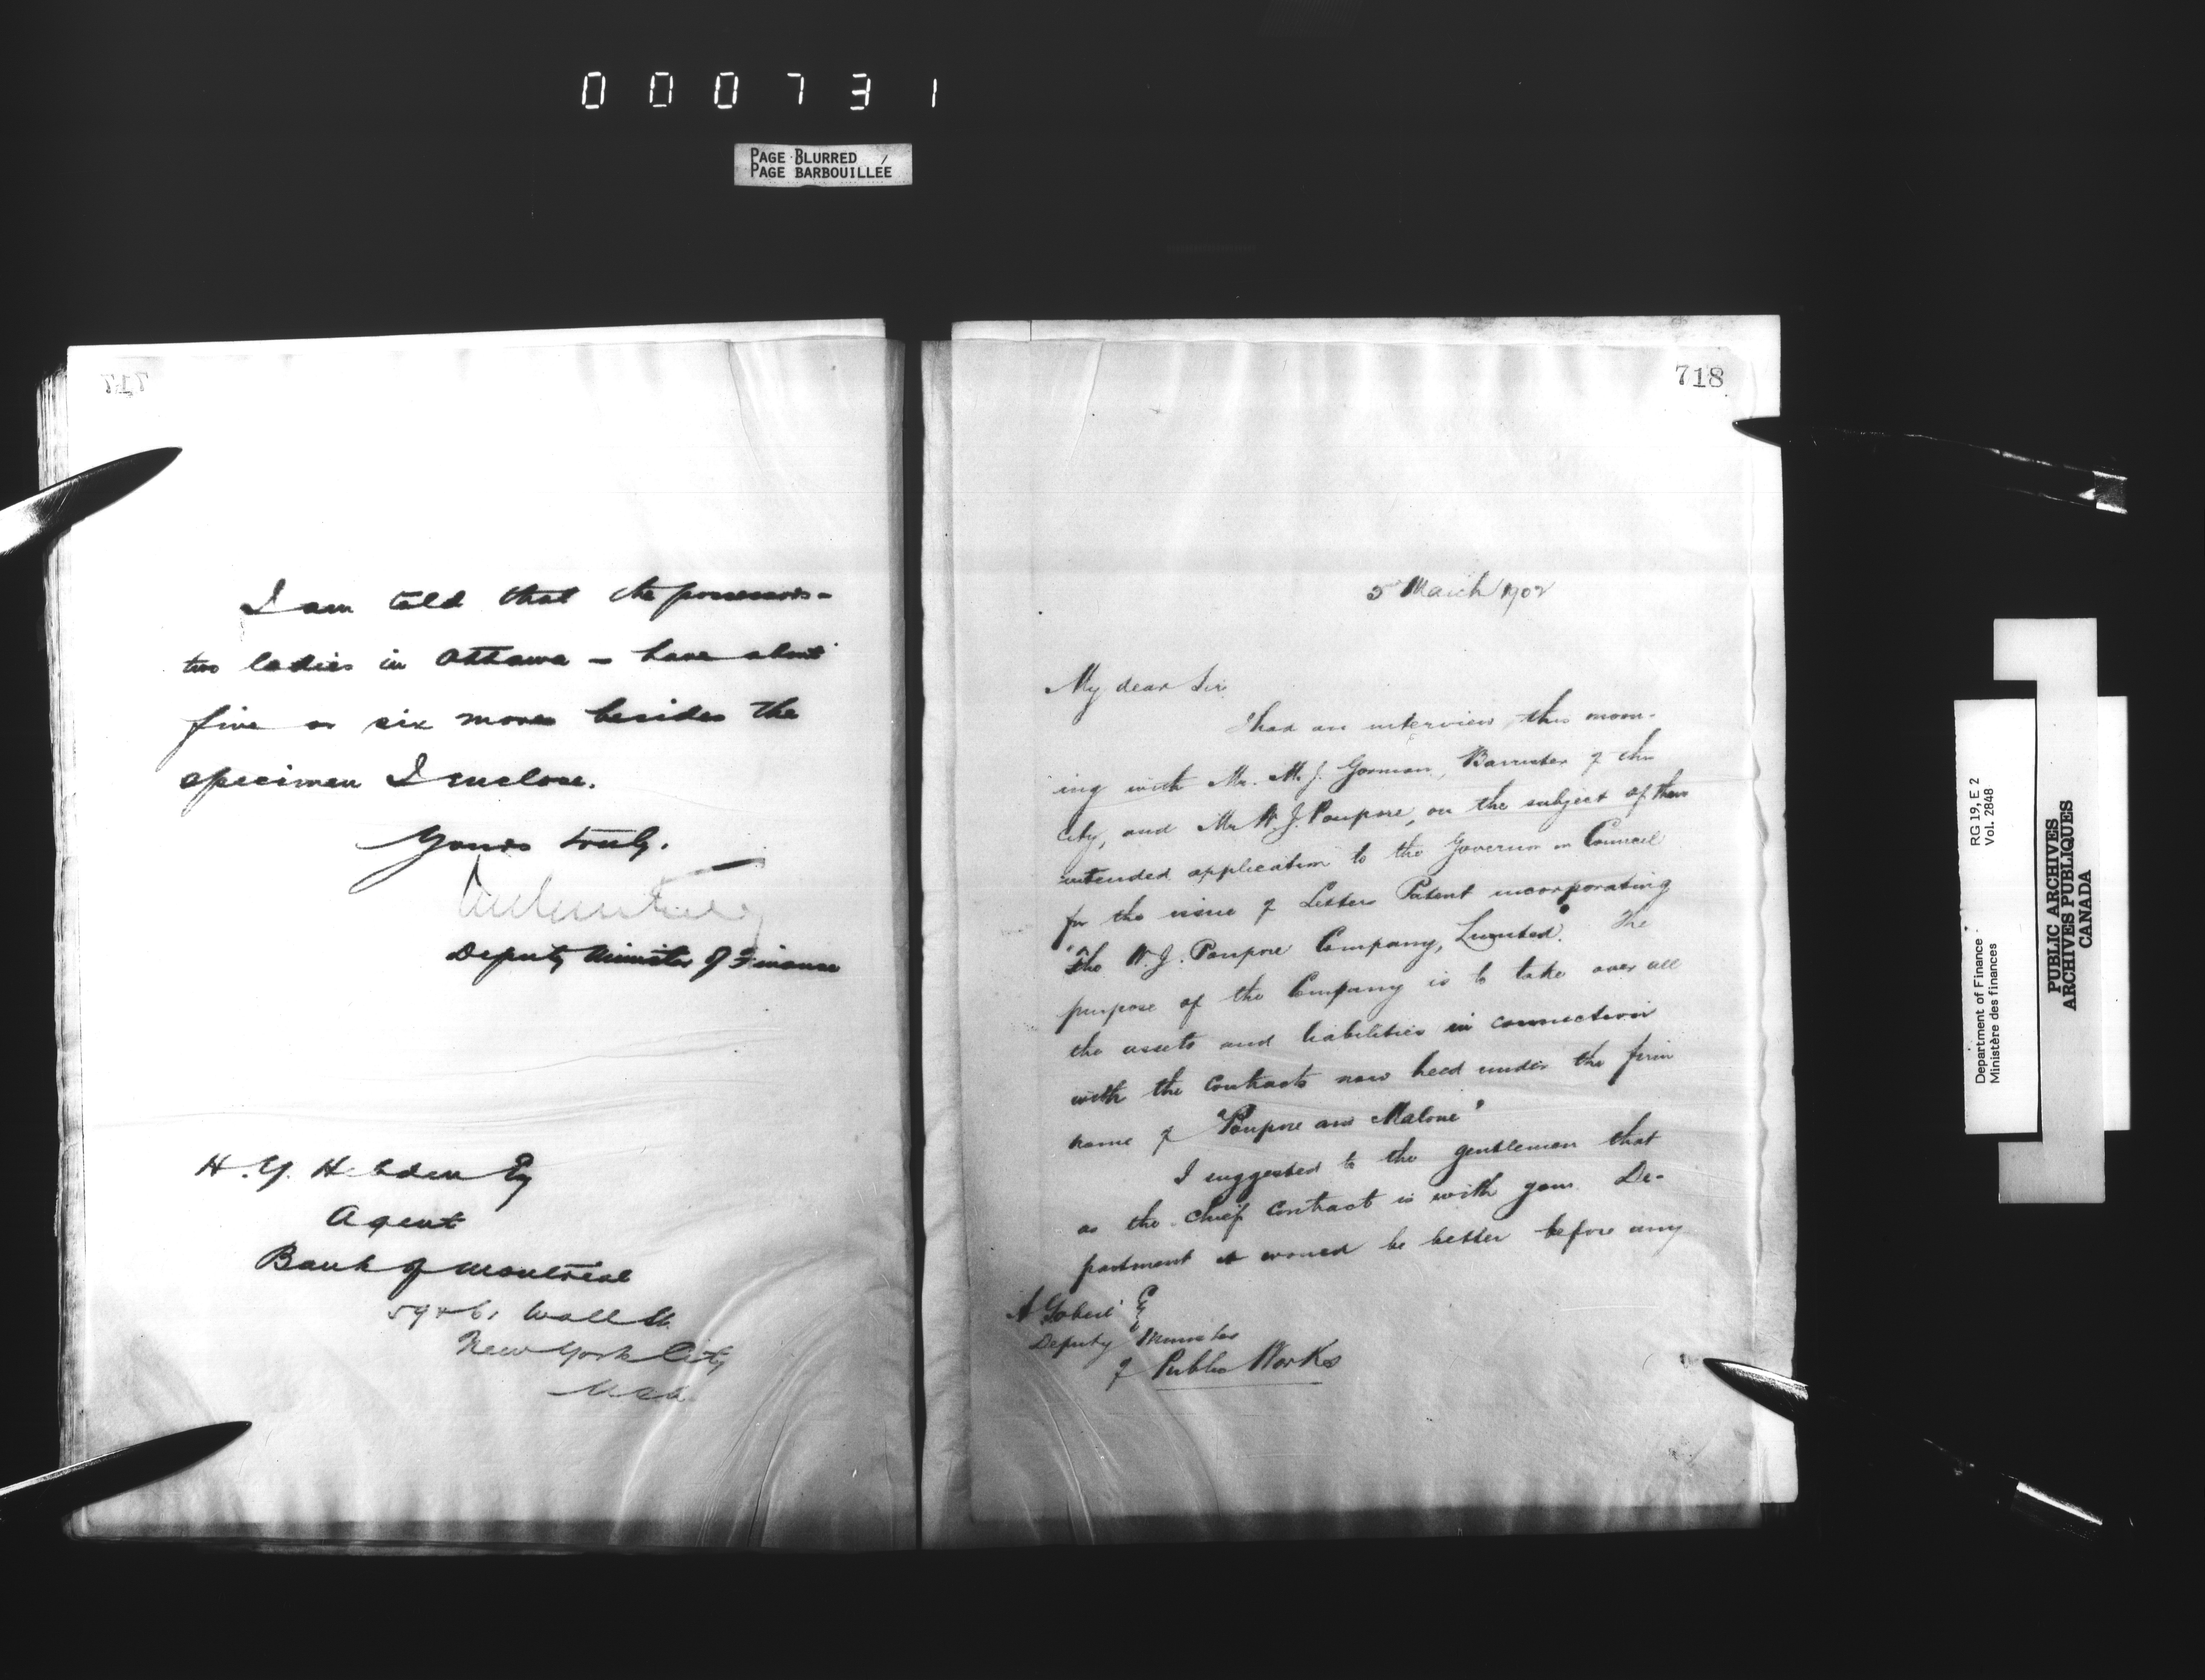 000731
PAGE BLURRED
PAGE BARBOUILLÉE
717
I am told that the possessors -
two ladies in Ottawa - have about
five or six more besides the
specimen I enclose.
Yours truly.
Deputy Minister of Finance
H. Y. Hebden Esq
Agent
Bank of Montreal
59 & 61 Wall St.
New York City
USA
718
5 March 1902
My dear Sir
I had an interview this morn-
ing with Mr. M. J. Gorman, Barrister of this
City, and Mr W. J. Poupore, on the subject of their
intended application to the Governor in Council
for the issue of Letters Patent incorporating
"The W. J. Poupore Company, Limited". The
purpose of the Company is to take over all
the assets and liabilities in connection
with the Contracts now held under the firm
name of "Poupore and Malone"
I suggested to the gentlemen that
as the chief Contract is with your De-
partment it would be better before any
A Gobeil Esq
Deputy Minister
of Public Works
Department of Finance
Ministère des finances
RG 19, E 2
Vol. 2848
PUBLIC ARCHIVES
ARCHIVES PUBLIQUES
CANADA